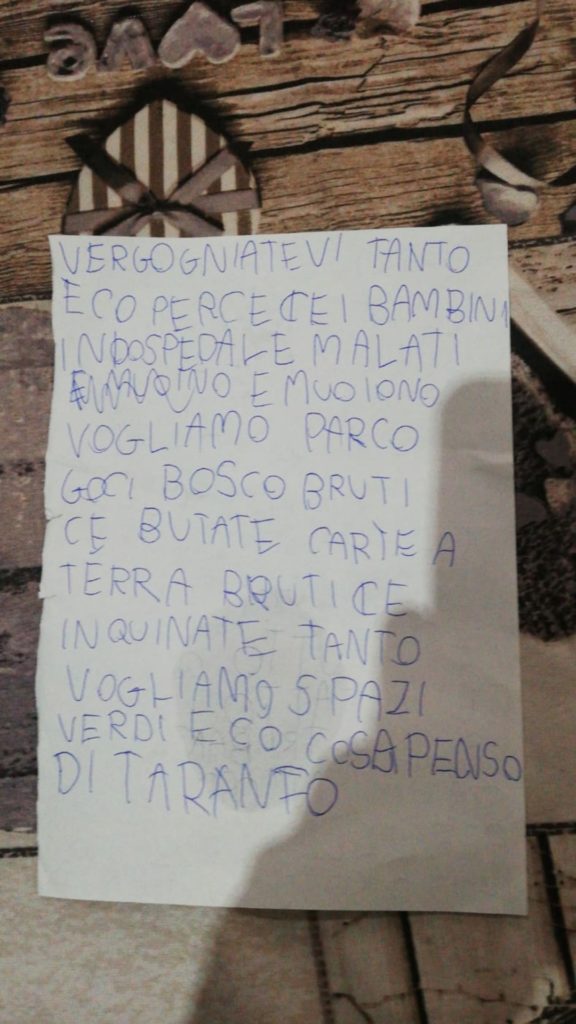 LOVE
VERGOGNIATEVI TANTO
ECO PERCE CE I BAMBINI
INOOSPEDALE MALATI
E MUOIONO
VOGLIAMO PARCO
GOCI BOSCO BRUTI
CE BUTATE CARTE A
TERRA BRUTI CE
INQUINATE TANTO
VOGLIAMO SPAZI
VERDI ECO COSA PENSO
DI TARANTO